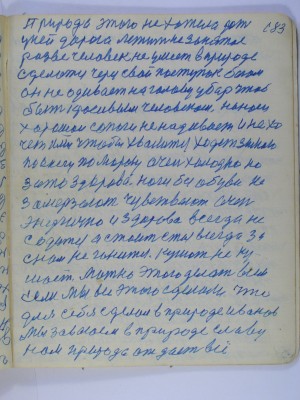 Природа этого не хотела вот 183
у ней дорога
разве человек не умеет в природе
сделать через свой поступок богом
он не одивает на голову убор чтоб
быть красивым человеком на ноги
хороших сапоги не надивает и не хо
чет ими чтобы хвалится ходит зимой
по снегу по морозу очень холодно но
зато здорово ноги без обуви не
замерзают чувствуют очень
энергично и здорово всегда не
сидяти а стоит стоя всегда за
сном не гонится кушат не ку
шает. Можно этого делает всем
если мы все этого сделаем что
для себя сделал в природе иванов
мы завоюем в природе славу
нам природа отдаст всё